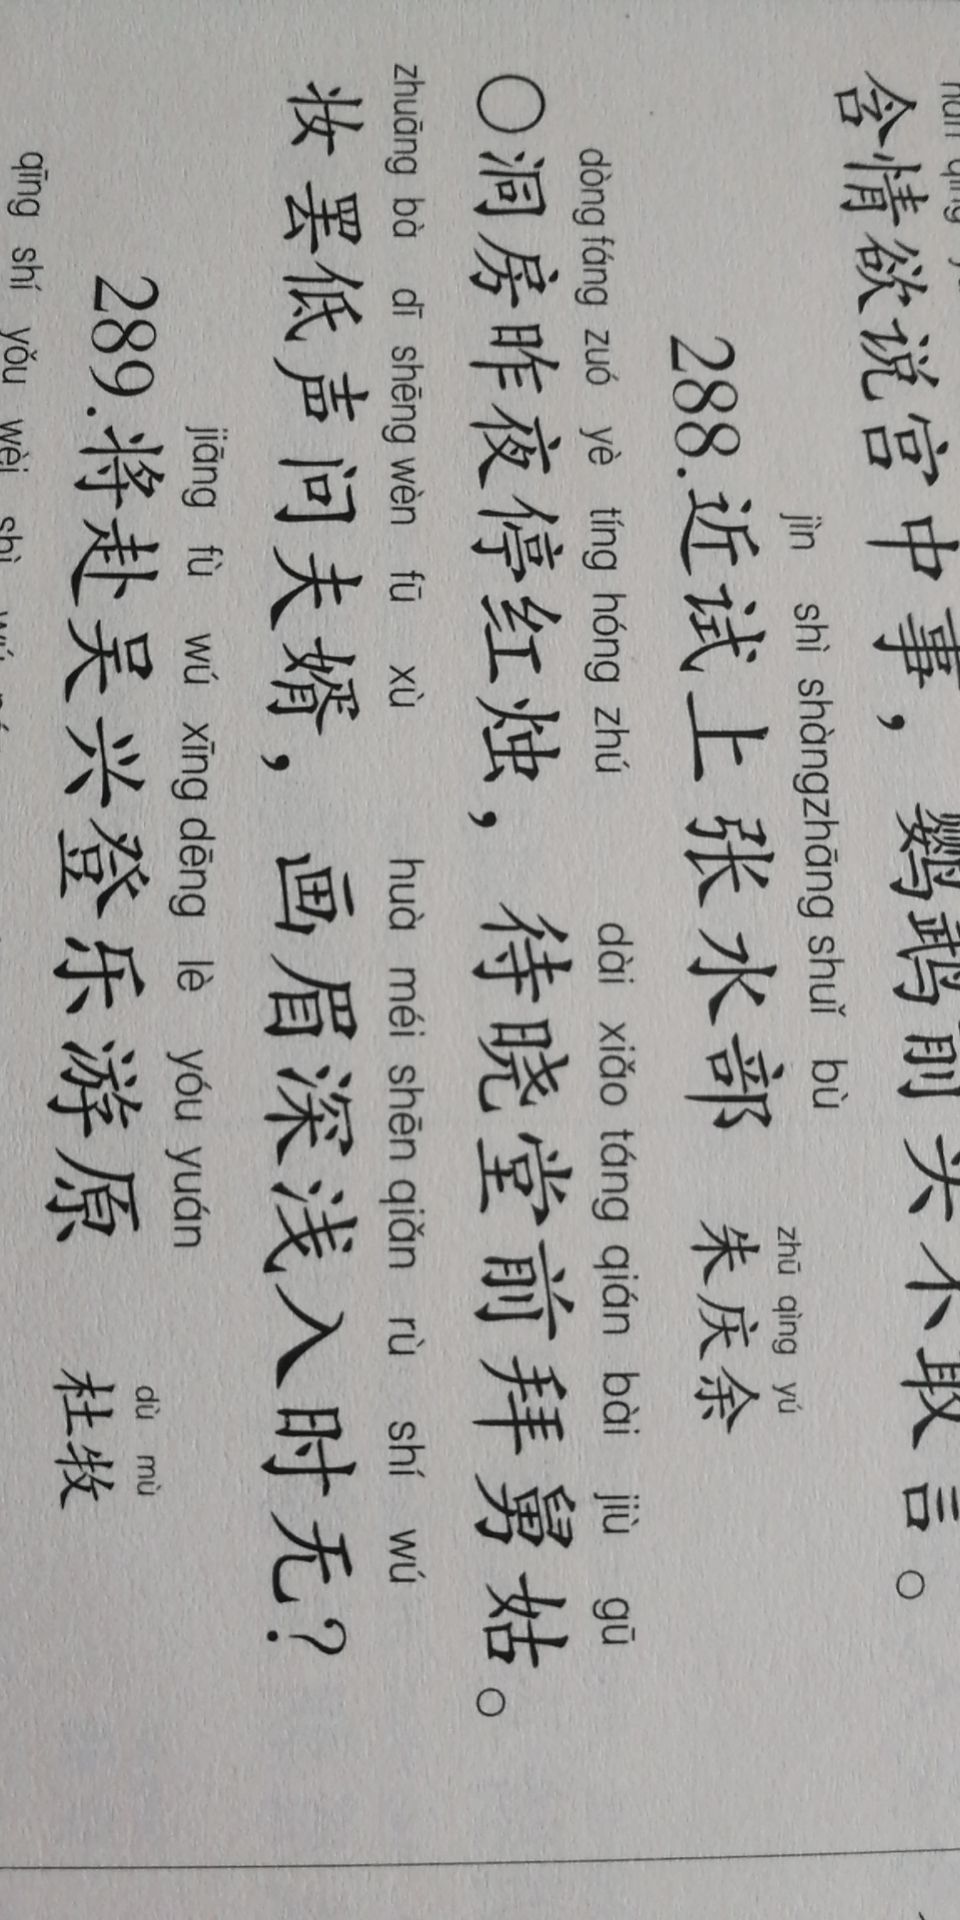 含情欲说宫中事，鹦鹉前头不敢言。
jìn shì shàng zhāng shuǐ bù zhū qìng yú
288.近试上张水部 朱庆余
dòng fáng zuó yè tíng hóng zhú dài xiǎo táng qián bài jiù gū
○洞房昨夜停红烛，待晓堂前拜舅姑。
zhuāng bà dī shēng wèn fū xù huà méi shēn qiǎn rù shí wú
妆罢低声问夫婿，画眉深浅入时无？
jiāng fù wú xīng dēng lè yóu yuán dù mù
289.将赴吴兴登乐游原 杜牧
qīng shí yǒu wèi shì